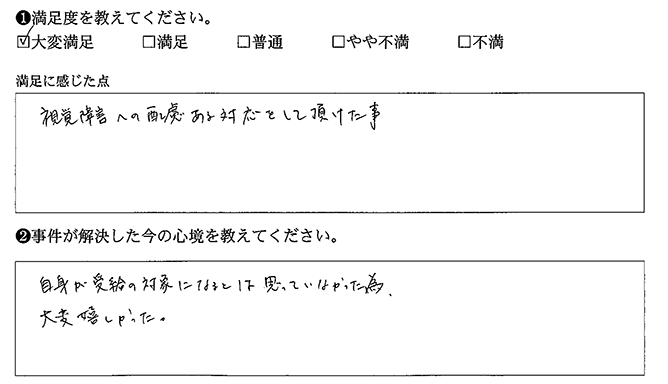 ❶満足度を教えてください。
☑大変満足 □満足 □普通 □やや不満 □不満
満足に感じた点
視覚障害への配慮ある対応をして頂けた事
❷事件が解決した今の心境を教えてください。
自身が受給の対象になるとは思っていなかった為、
大変嬉しかった。